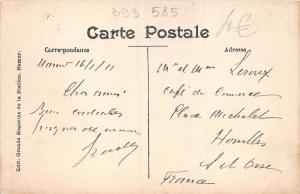 893 585
4€
Carte Postale
Correspondance
Adresse
Namur 16/1/11
Chers amis
Bien cordiales
Mr et Mme Leroux
Café du Commerce
Place Michelet
Houilles
S et Oise
France
Edit. Grands Magasins de la Station, Namur.